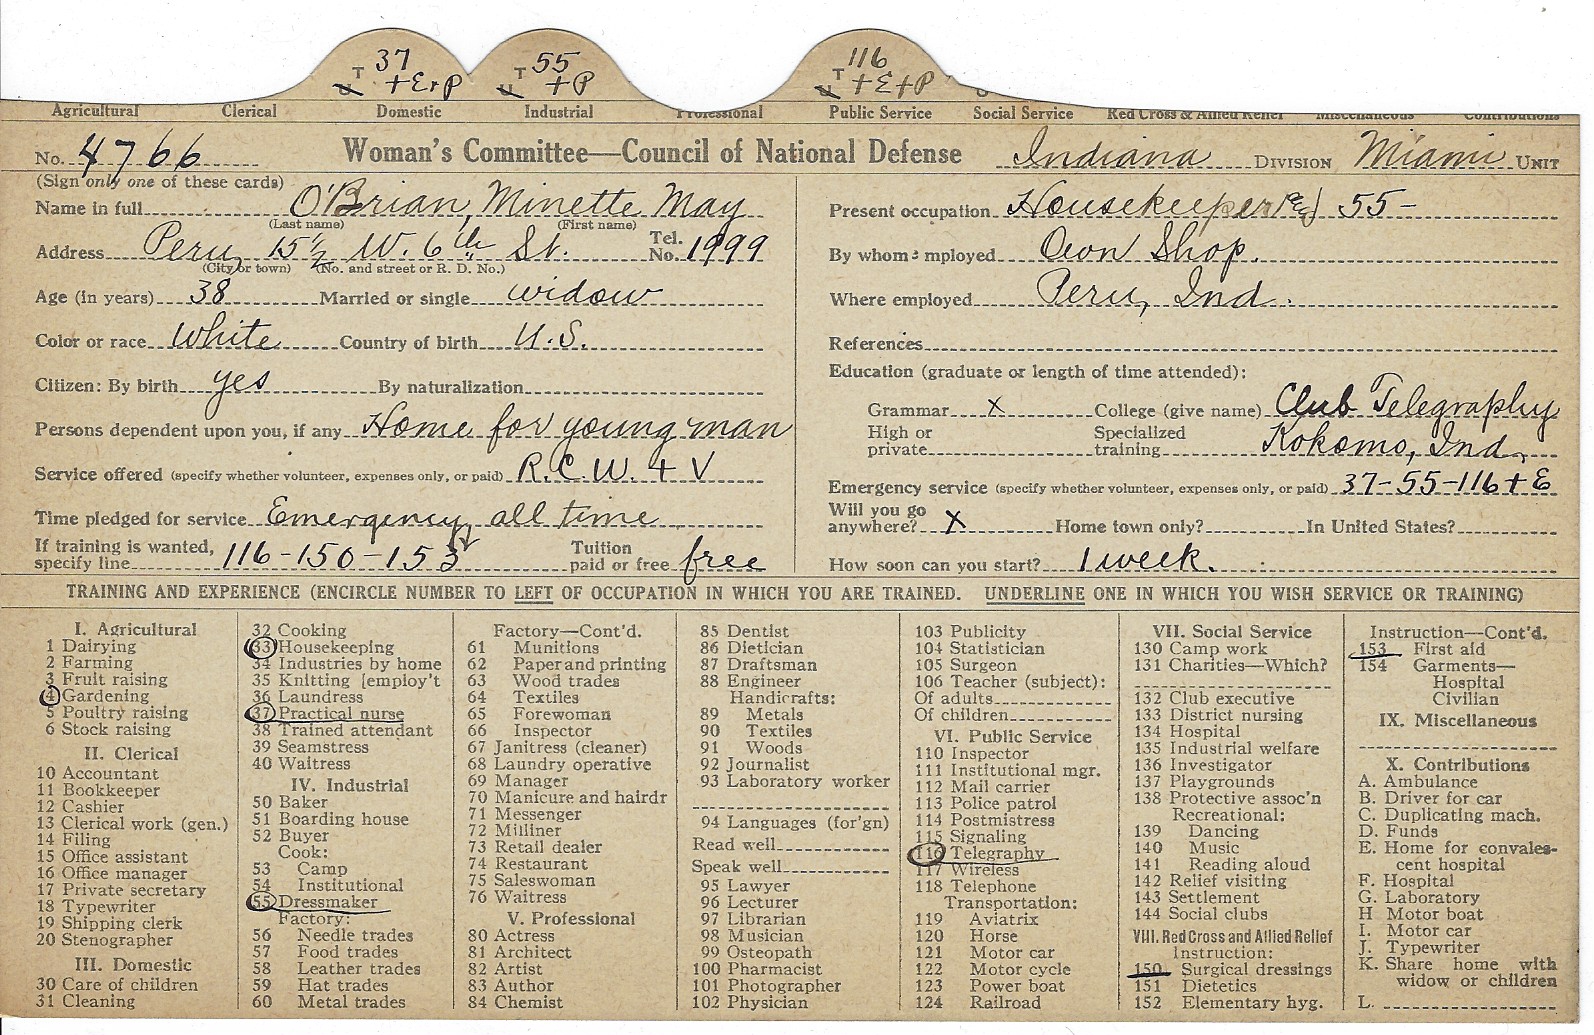 37 55 116
T T T
U +E+P U +P U +E+P
Agricultural Clerical Domestic Industrial Professional Public Service Social Service Red Cross & Allied Relief Miscellaneous Contributions
No. 4766 Woman's Committee—Council of National Defense Indiana DIVISION Miami UNIT
(Sign only one of these cards)
Name in full O'Brian, Minette May
(Last name) (First name)
Address Peru, 15½ W. 6th St. Tel. No. 1999
(City or town) (No. and street or R. D. No.)
Age (in years) 38 Married or single widow
Color or race White Country of birth U.S.
Citizen: By birth yes By naturalization
Persons dependent upon you, if any Home for young man
Service offered (specify whether volunteer, expenses only, or paid) R.C.W. + V
Time pledged for service Emergency, all time
If training is wanted, specify line 116-150-153 Tuition paid or free free
Present occupation Housekeeper 55-
By whom employed Own Shop.
Where employed Peru, Ind.
References
Education (graduate or length of time attended):
Grammar X College (give name) Club Telegraphy
High or private Specialized training Kokomo, Ind.
Emergency service (specify whether volunteer, expenses only, or paid) 37-55-116+E
Will you go anywhere? X Home town only? In United States?
How soon can you start? 1 week.
TRAINING AND EXPERIENCE (ENCIRCLE NUMBER TO LEFT OF OCCUPATION IN WHICH YOU ARE TRAINED. UNDERLINE ONE IN WHICH YOU WISH SERVICE OR TRAINING)
I. Agricultural
1 Dairying
2 Farming
3 Fruit raising
4 Gardening
5 Poultry raising
6 Stock raising
II. Clerical
10 Accountant
11 Bookkeeper
12 Cashier
13 Clerical work (gen.)
14 Filing
15 Office assistant
16 Office manager
17 Private secretary
18 Typewriter
19 Shipping clerk
20 Stenographer
III. Domestic
30 Care of children
31 Cleaning
32 Cooking
33 Housekeeping
34 Industries by home
35 Knitting [employ't
36 Laundress
37 Practical nurse
38 Trained attendant
39 Seamstress
40 Waitress
IV. Industrial
50 Baker
51 Boarding house
52 Buyer
Cook:
53 Camp
54 Institutional
55 Dressmaker
Factory:
56 Needle trades
57 Food trades
58 Leather trades
59 Hat trades
60 Metal trades
Factory—Cont'd.
61 Munitions
62 Paper and printing
63 Wood trades
64 Textiles
65 Forewoman
66 Inspector
67 Janitress (cleaner)
68 Laundry operative
69 Manager
70 Manicure and hairdr
71 Messenger
72 Milliner
73 Retail dealer
74 Restaurant
75 Saleswoman
76 Waitress
V. Professional
80 Actress
81 Architect
82 Artist
83 Author
84 Chemist
85 Dentist
86 Dietician
87 Draftsman
88 Engineer
Handicrafts:
89 Metals
90 Textiles
91 Woods
92 Journalist
93 Laboratory worker
94 Languages (for'gn)
Read well
Speak well
95 Lawyer
96 Lecturer
97 Librarian
98 Musician
99 Osteopath
100 Pharmacist
101 Photographer
102 Physician
103 Publicity
104 Statistician
105 Surgeon
106 Teacher (subject):
Of adults
Of children
VI. Public Service
110 Inspector
111 Institutional mgr.
112 Mail carrier
113 Police patrol
114 Postmistress
115 Signaling
116 Telegraphy
117 Wireless
118 Telephone
Transportation:
119 Aviatrix
120 Horse
121 Motor car
122 Motor cycle
123 Power boat
124 Railroad
VII. Social Service
130 Camp work
131 Charities—Which?
132 Club executive
133 District nursing
134 Hospital
135 Industrial welfare
136 Investigator
137 Playgrounds
138 Protective assoc'n
Recreational:
139 Dancing
140 Music
141 Reading aloud
142 Relief visiting
143 Settlement
144 Social clubs
VIII. Red Cross and Allied Relief
Instruction:
150 Surgical dressings
151 Dietetics
152 Elementary hyg.
Instruction—Cont'd.
153 First aid
154 Garments—
Hospital
Civilian
IX. Miscellaneous
X. Contributions
A. Ambulance
B. Driver for car
C. Duplicating mach.
D. Funds
E. Home for convales-
cent hospital
F. Hospital
G. Laboratory
H Motor boat
I. Motor car
J. Typewriter
K. Share home with
widow or children
L.